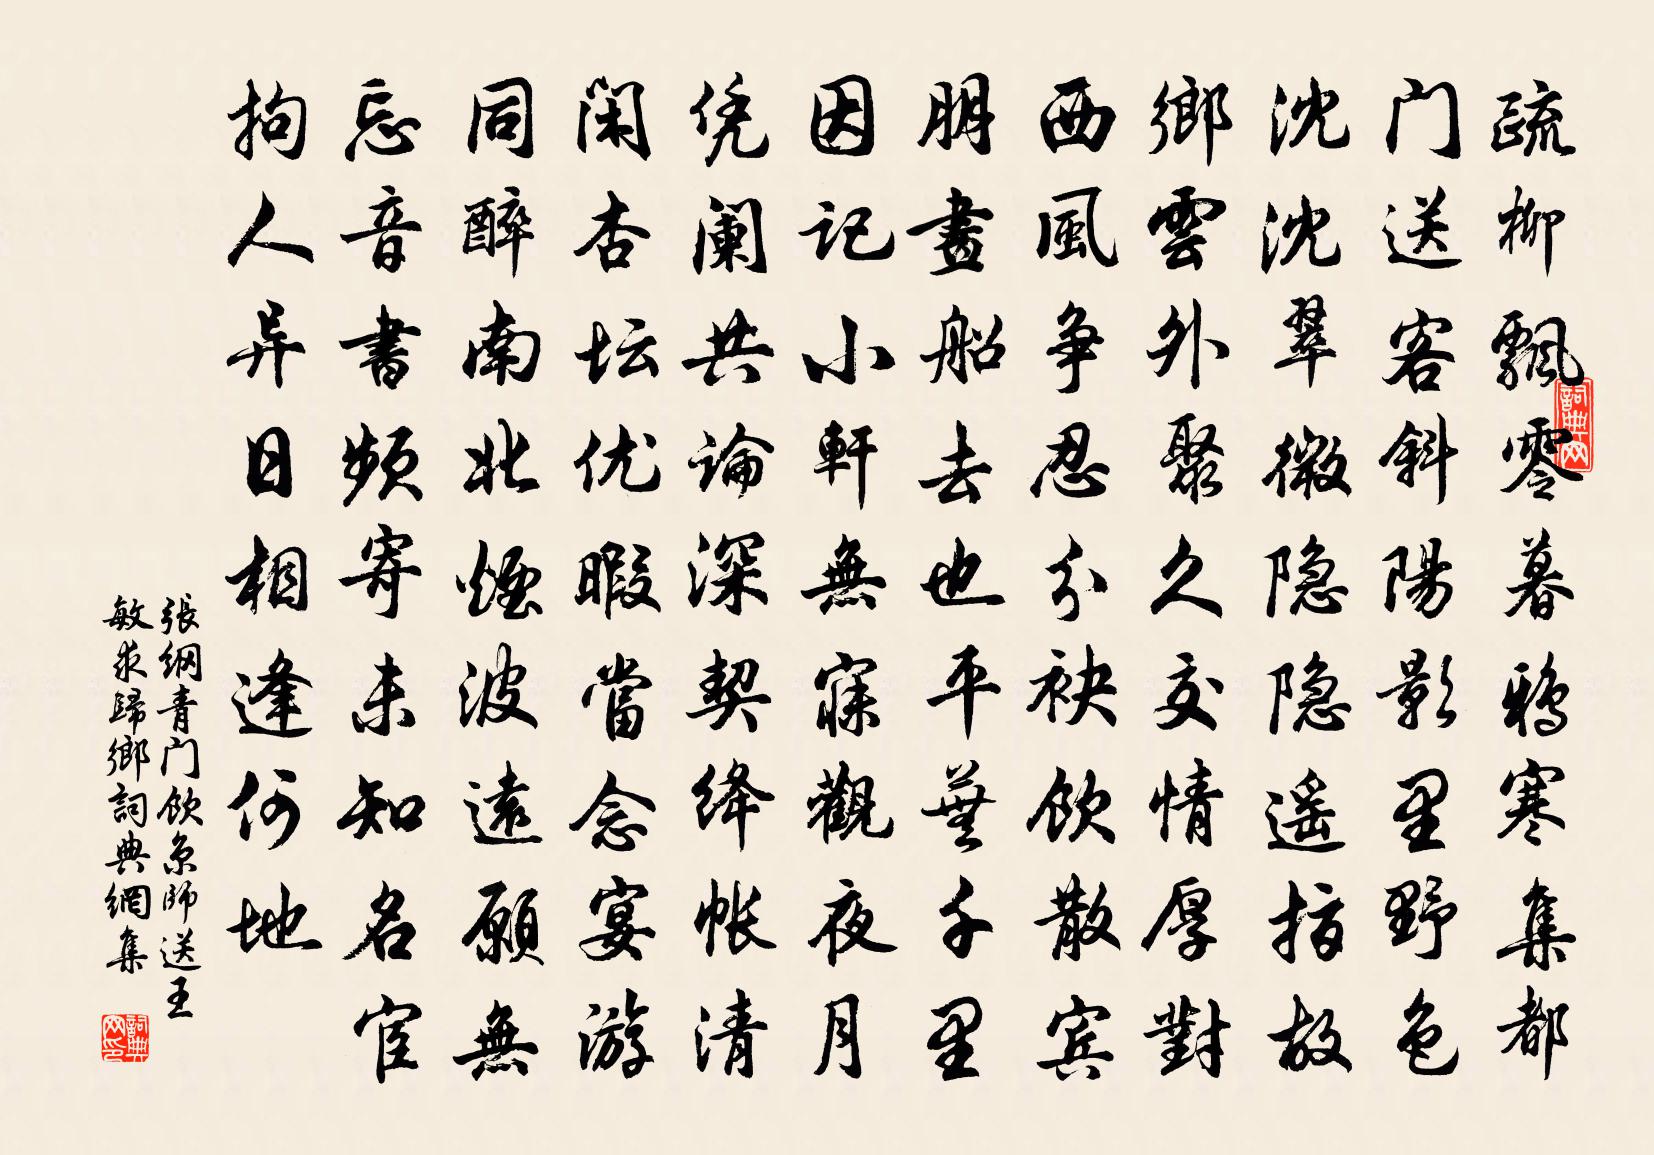 疏柳飄零暮鴉寒集都
门送客斜陽影里野色
沈沈翠微隐隐遥指故
鄉雲外聚久交情厚對
西風争忍分袂飲散宾
朋畫船去也平蕪千里
因记小軒無寐觀夜月
凭阑共論深契绛帐清
闲杏坛优暇當念宴游
同醉南北煙波遠願無
忘音書频寄未知名宦
拘人异日相逢何地
張綱青门飲京師送王
敏求歸鄉詞典網集
詞典网
詞典网印